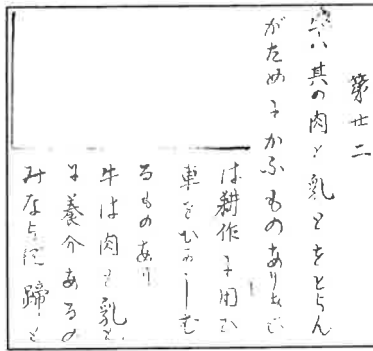 第廿二
牛ハ其の肉と乳とをとらん
がため子かふものあり
は耕作子用ひ
車をむか しむ
るものあり
牛は肉と乳と
養介あるの
みなら 蹄と